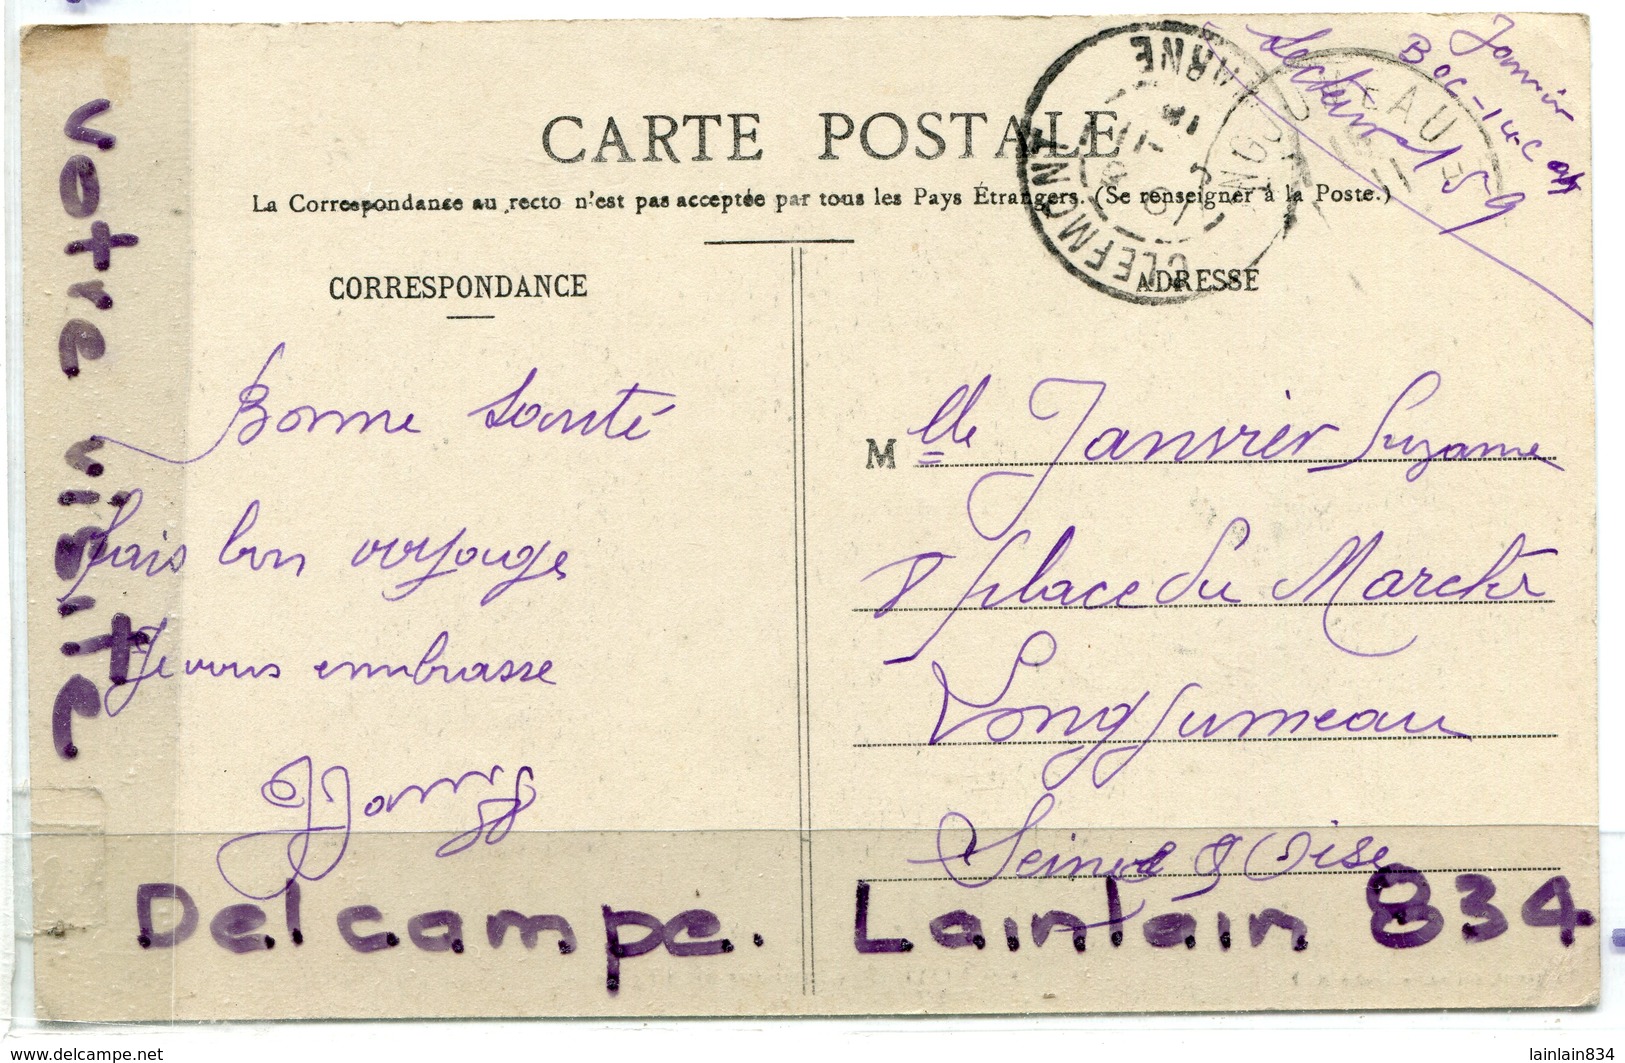 Janvier
Secteur 159
CARTE POSTALE
La Correspondance au recto n'est pas acceptée par tous les Pays Étrangers. (Se renseigner à la Poste.)
CLEFMONT
MARNE
CORRESPONDANCE
Bonne Santé
fais bon voyage
Je vous embrasse
ADRESSE
Mlle Janvier Suzanne
8 place du Marché
Longjumeau
Seine & Oise
votre visite
Delcampe. Lainlain 834.
www.delcampe.net
lainlain834